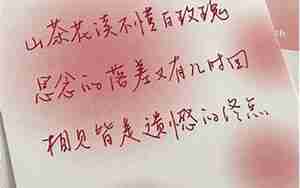 山茶花读不懂白玫瑰
思念的落差又有几时回
相见皆是遗憾的终点